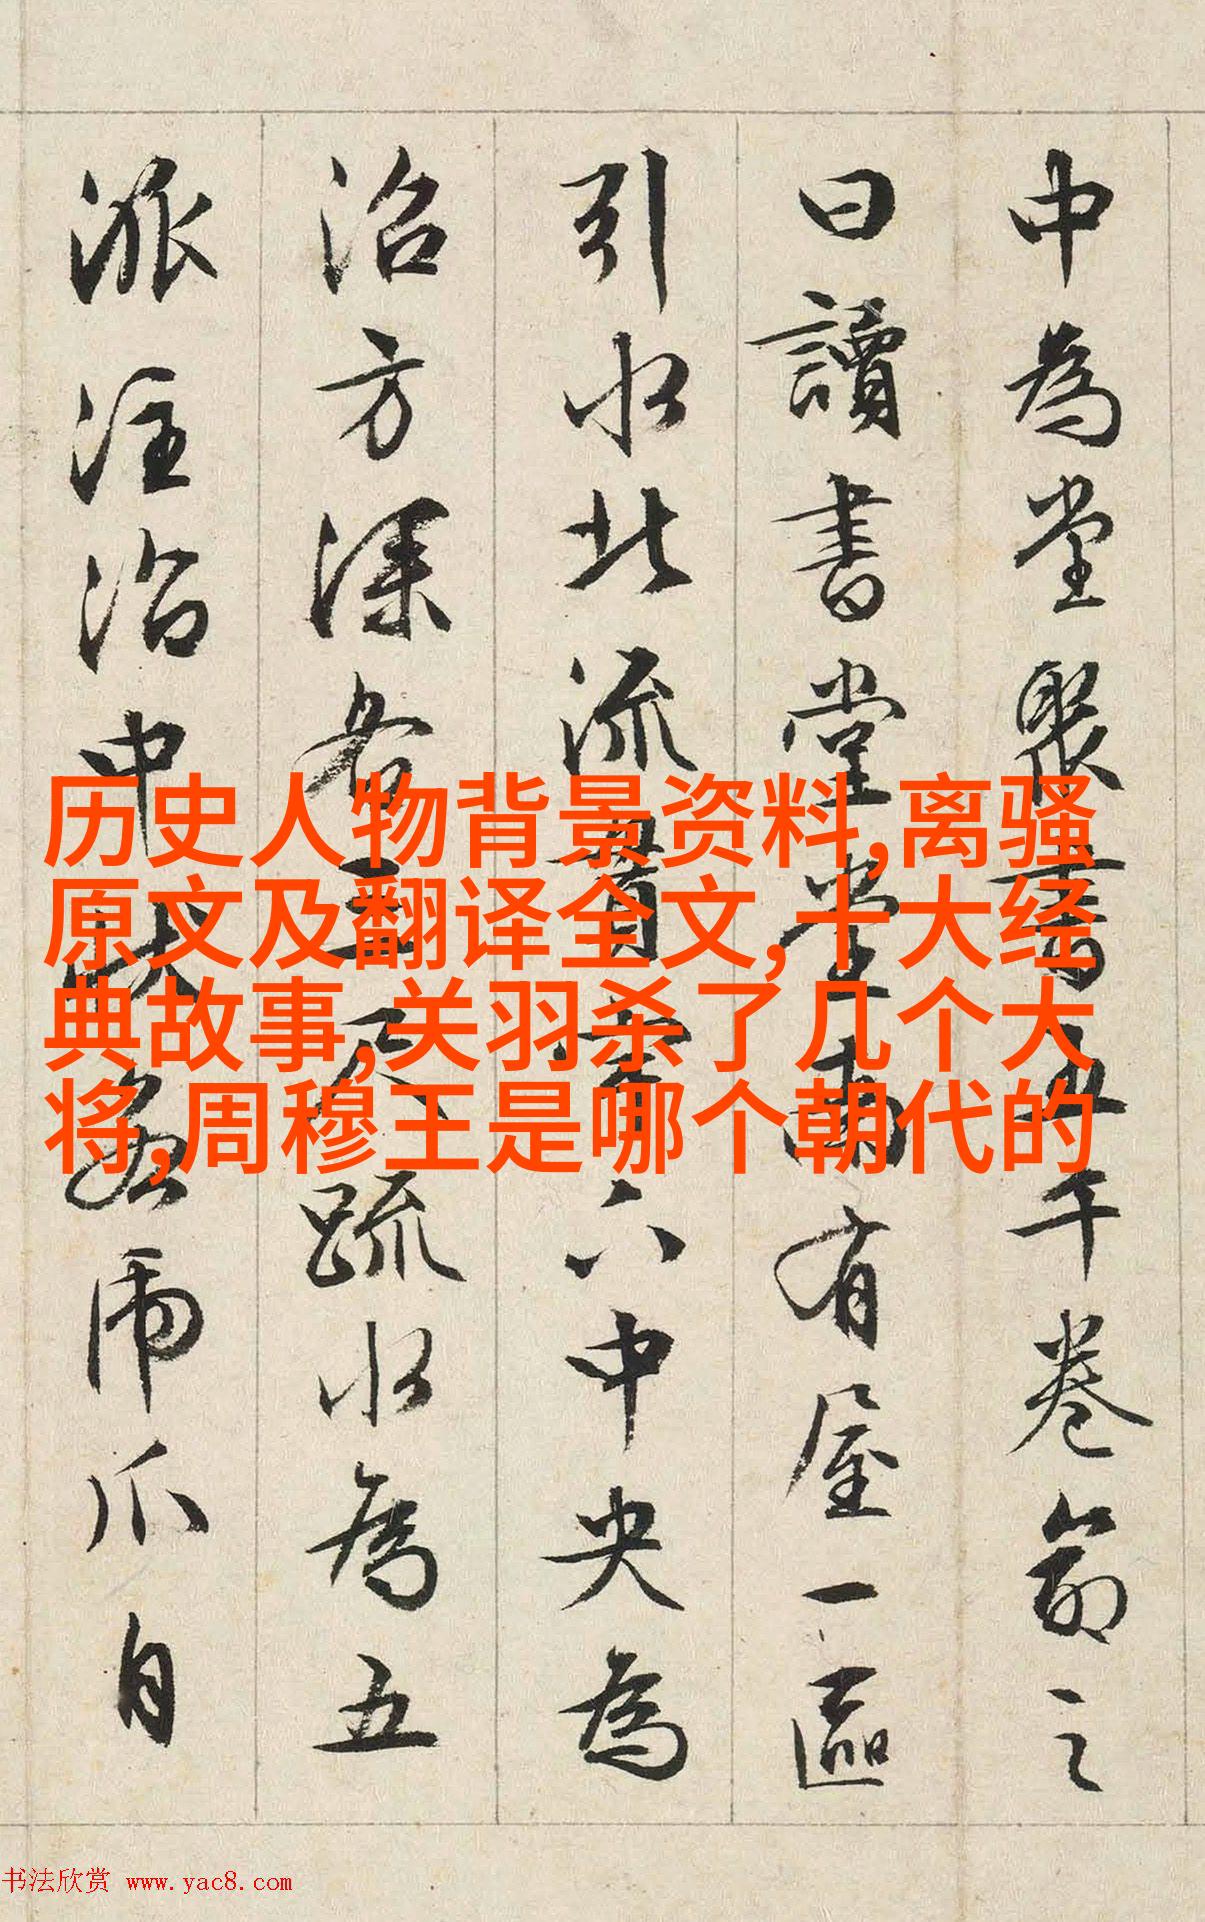 中為堂聚書五千卷命之
曰讀書堂堂南有屋一區
引水北流貫宇下中央為
沼方深各三尺疏水為五
派注沼中狀若虎爪自
历史人物背景资料,离骚
原文及翻译全文,十大经
典故事,关羽杀了几个大
将,周穆王是哪个朝代的
书法欣赏 www.yac8.com